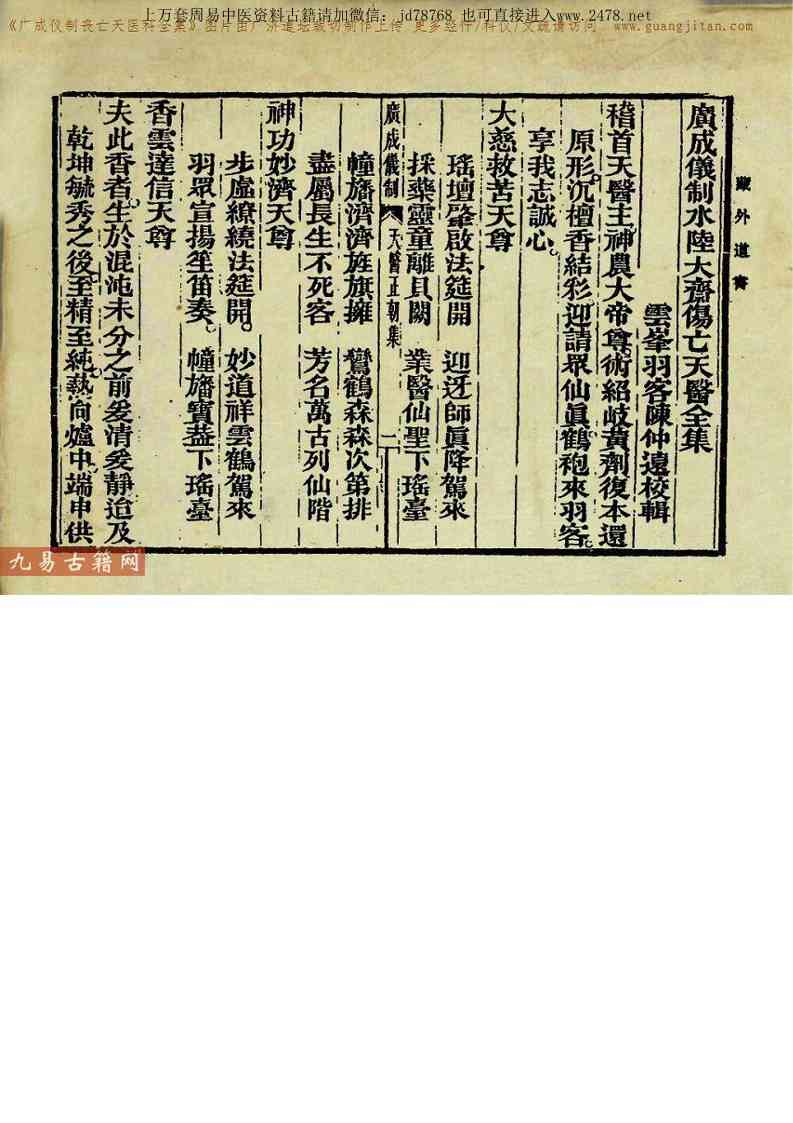 上万套周易中医资料古籍请加微信：jd78768 也可直接进入www.2478.net
www.guangjitan.com
藏外道書
廣成儀制水陸大齋傷亡天醫全集
雲峯羽客陳仲遠校輯
稽首天醫主。神農大帝尊。術紹岐黃劑復本還
原形。沉檀香結彩。迎請眾仙眞。鶴袍來羽客。
享我志誠心。
大慈救苦天尊
瑤壇肇啟法筵開　迎迓師眞降駕來
採藥靈童離貝闕　業醫仙聖下瑤臺
廣成儀制　天醫正朝集　二
幢旛濟濟旌旗擁　鸞鶴森森次第排
盡屬長生不死客　芳名萬古列仙階
神功妙濟天尊
步虛繚繞法筵開。　妙道祥雲鶴駕來
羽眾宣揚笙笛奏。　幢旛寶葢下瑤臺
香雲達信天尊
夫此香者。生於混沌未分之前爰清爰靜迨及
乾坤毓秀之後。至精至純。熱向爐中。端申供
九易古籍网